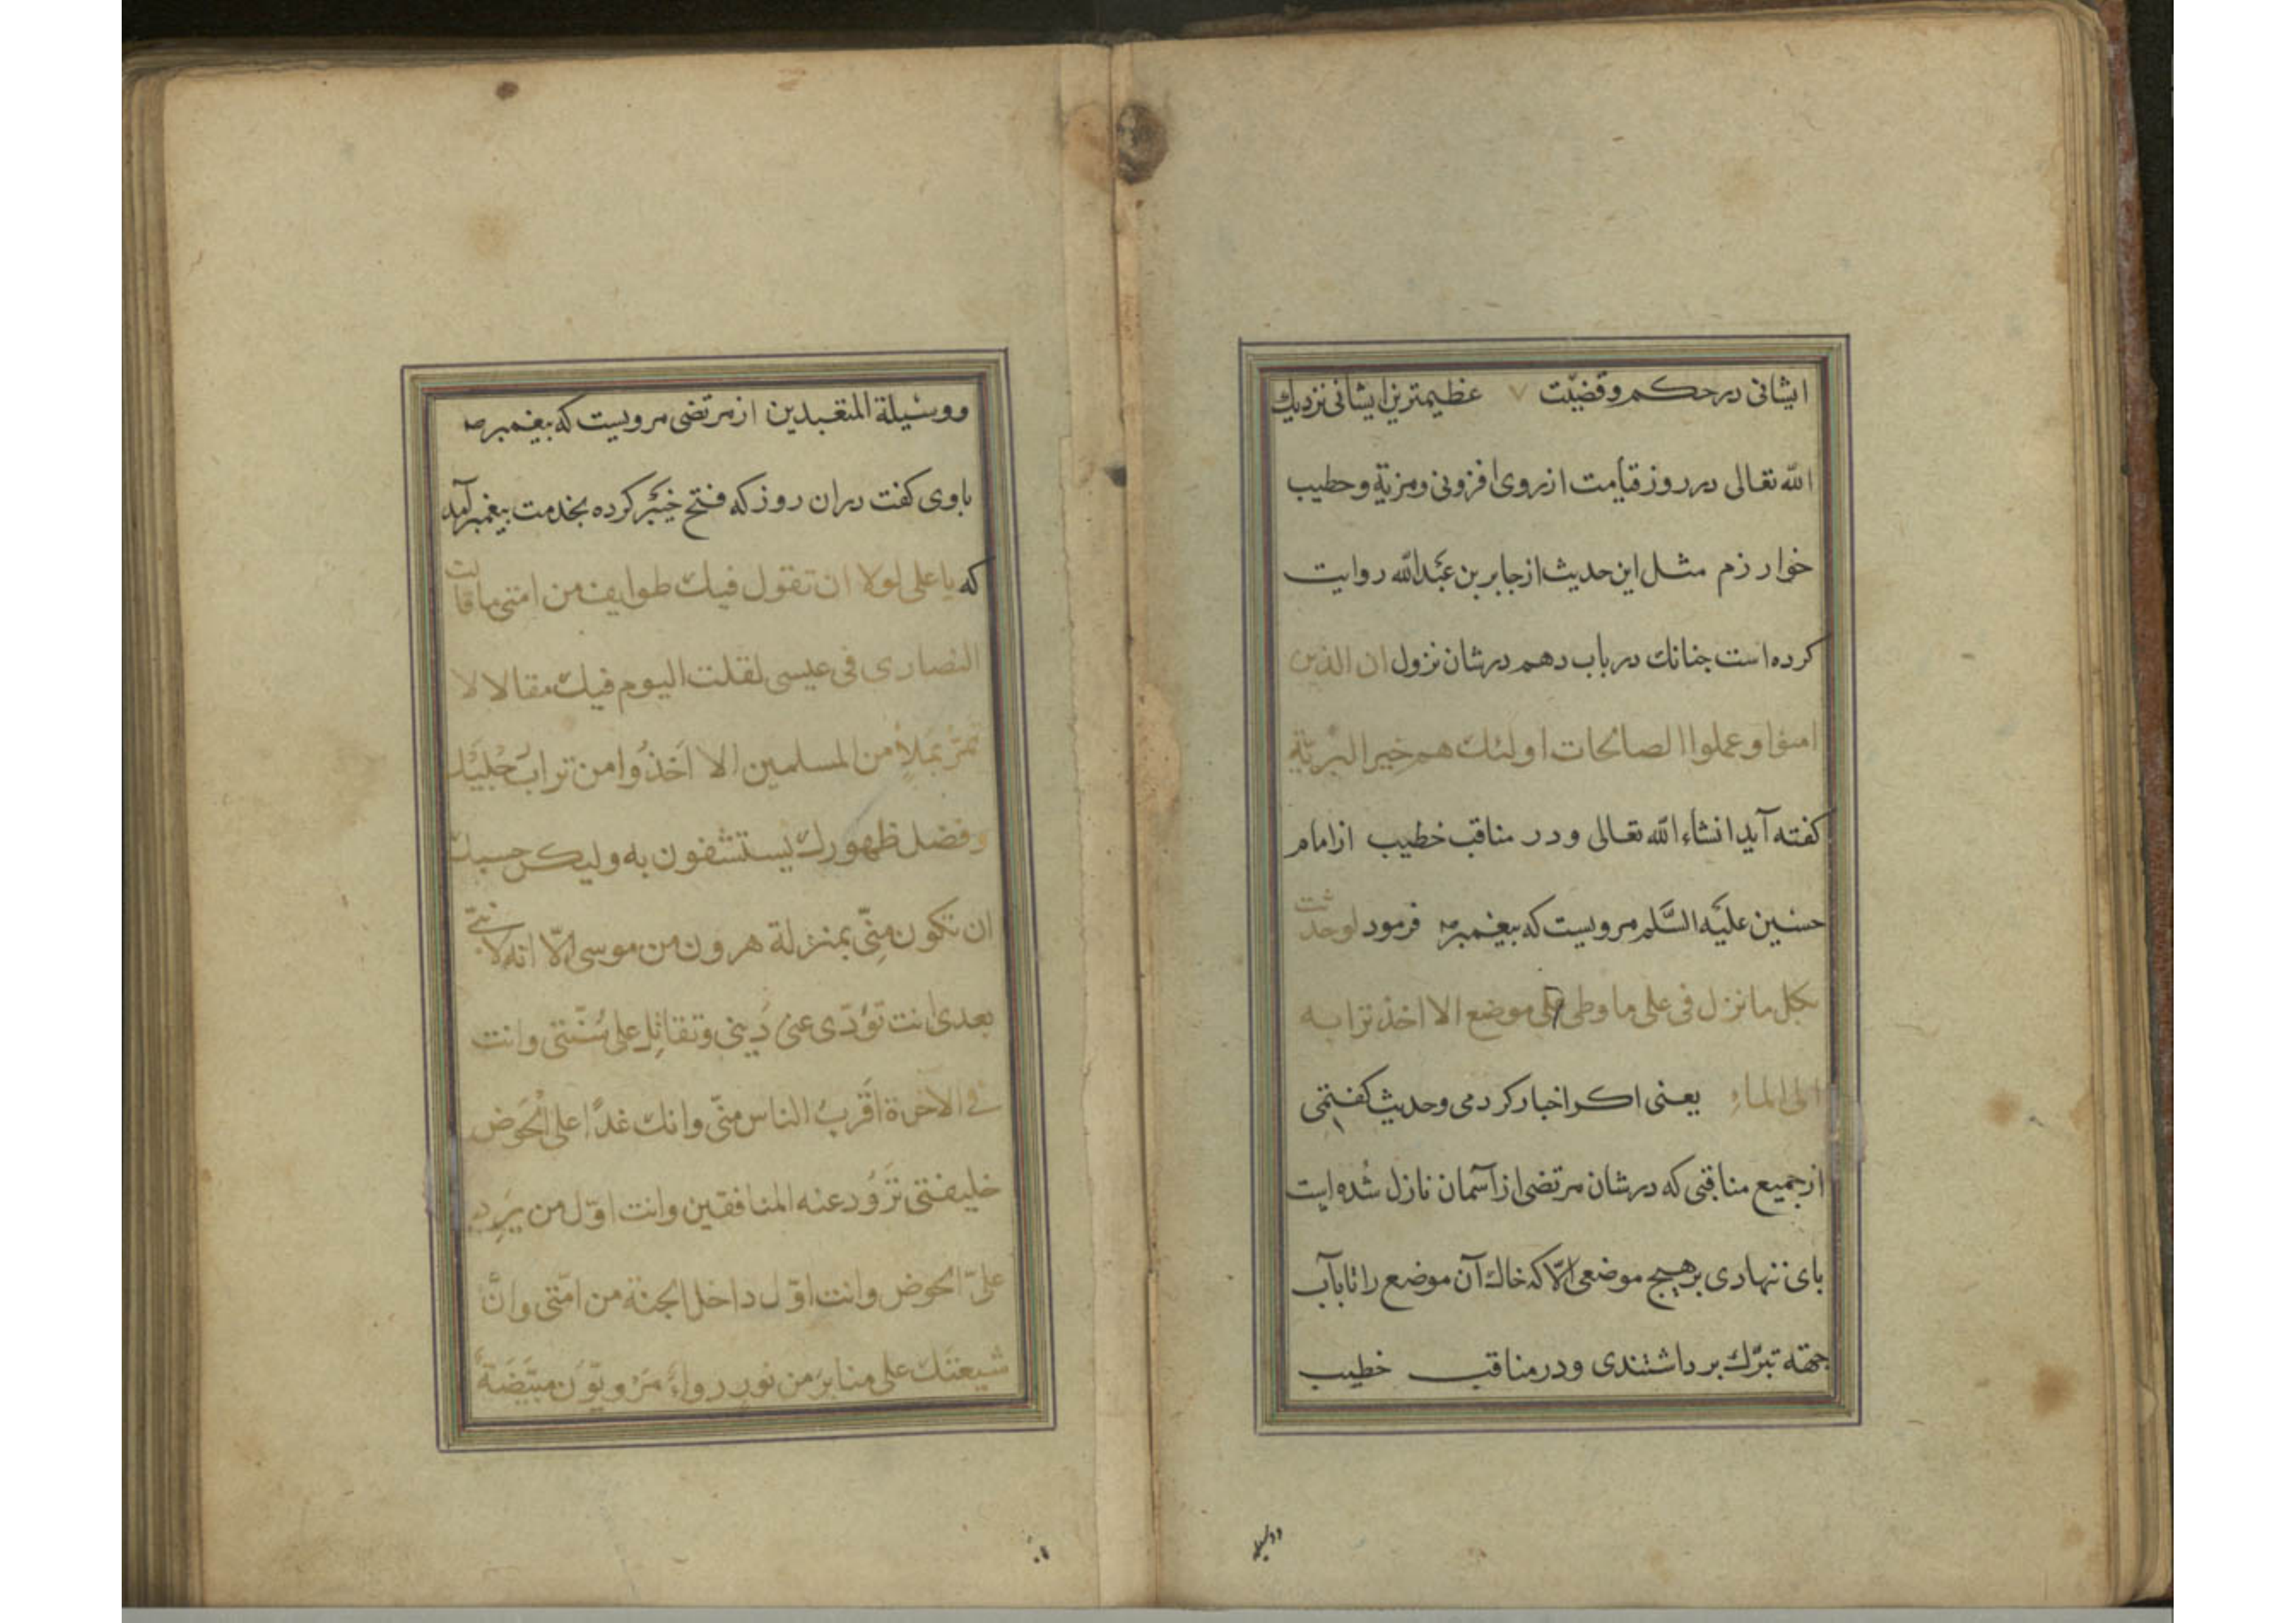 ایشانی در حکم و قضیّت ۷ عظیمترین ایشانی نزدیك
الله تعالی در روز قیامت از روی افزونی و مزیة و خطیب
خوارزم مثل این حدیث از جابر بن عبدالله روایت
کرده است جنانك در باب دهم در شان نزول ان الذین
امنوا و عملوا الصالحات اولئك هم خیر البریّة
کفته آید انشاء الله تعالی و در مناقب خطیب از امام
حسین علیه السّلم مرویست که بیغمبر صه فرمود لو حدثت
بکل ما نزل فی علی ما وطی علی موضع الا اخذ ترابه
الی الماء یعنی اکر اخبار کردمی و حدیث کفتمی
از جمیع مناقبی که در شان مرتضی از آسمان نازل شده است
بای ننهادی بر هیج موضعی الّا که خاك آن موضع را تا بآب
جهته تبرّك برداشتندی و در مناقب خطیب
و وسیله
و وسیلة المتعبدین از مرتضی مرویست که بیغمبر صه
باوی کفت دران روز که فتح خیبر کرده بخدمت بیغمبر آمد
که یا علی لولا ان تقول فیك طوایف من امتی ما قالت
النصاری فی عیسی لقلت الیوم فیك مقالا لا
تمرّ بملإ من المسلمین الا اخذوا من تراب
و فضل طهورك یستشفون به ولیکن حسبك
ان تکون منّی بمنزلة هرون من موسی الّا انه لا نبیّ
بعدی انت تؤدّی عنی دینی وتقاتل علی سُنّتی وانت
فی الآخرة اقرب الناس منّی وانك غدًا علی الحوض
خلیفتی تزود عنه المنافقین وانت اوّل من یرد
علیّ الحوض وانت اوّل داخل الجنّة من امّتی وانّ
شیعتك علی منابر من نور رواء مرویّون مبیّضة